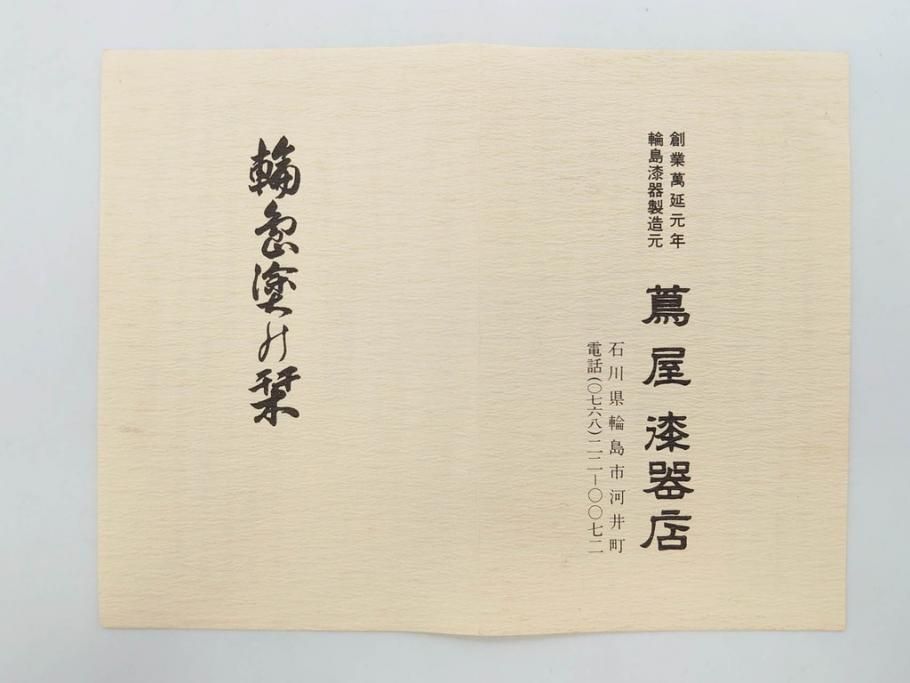 創業萬延元年
輪島漆器製造元
蔦屋漆器店
石川県輪島市河井町
電話(〇七六八)二二－〇〇七二
輪島塗の栞